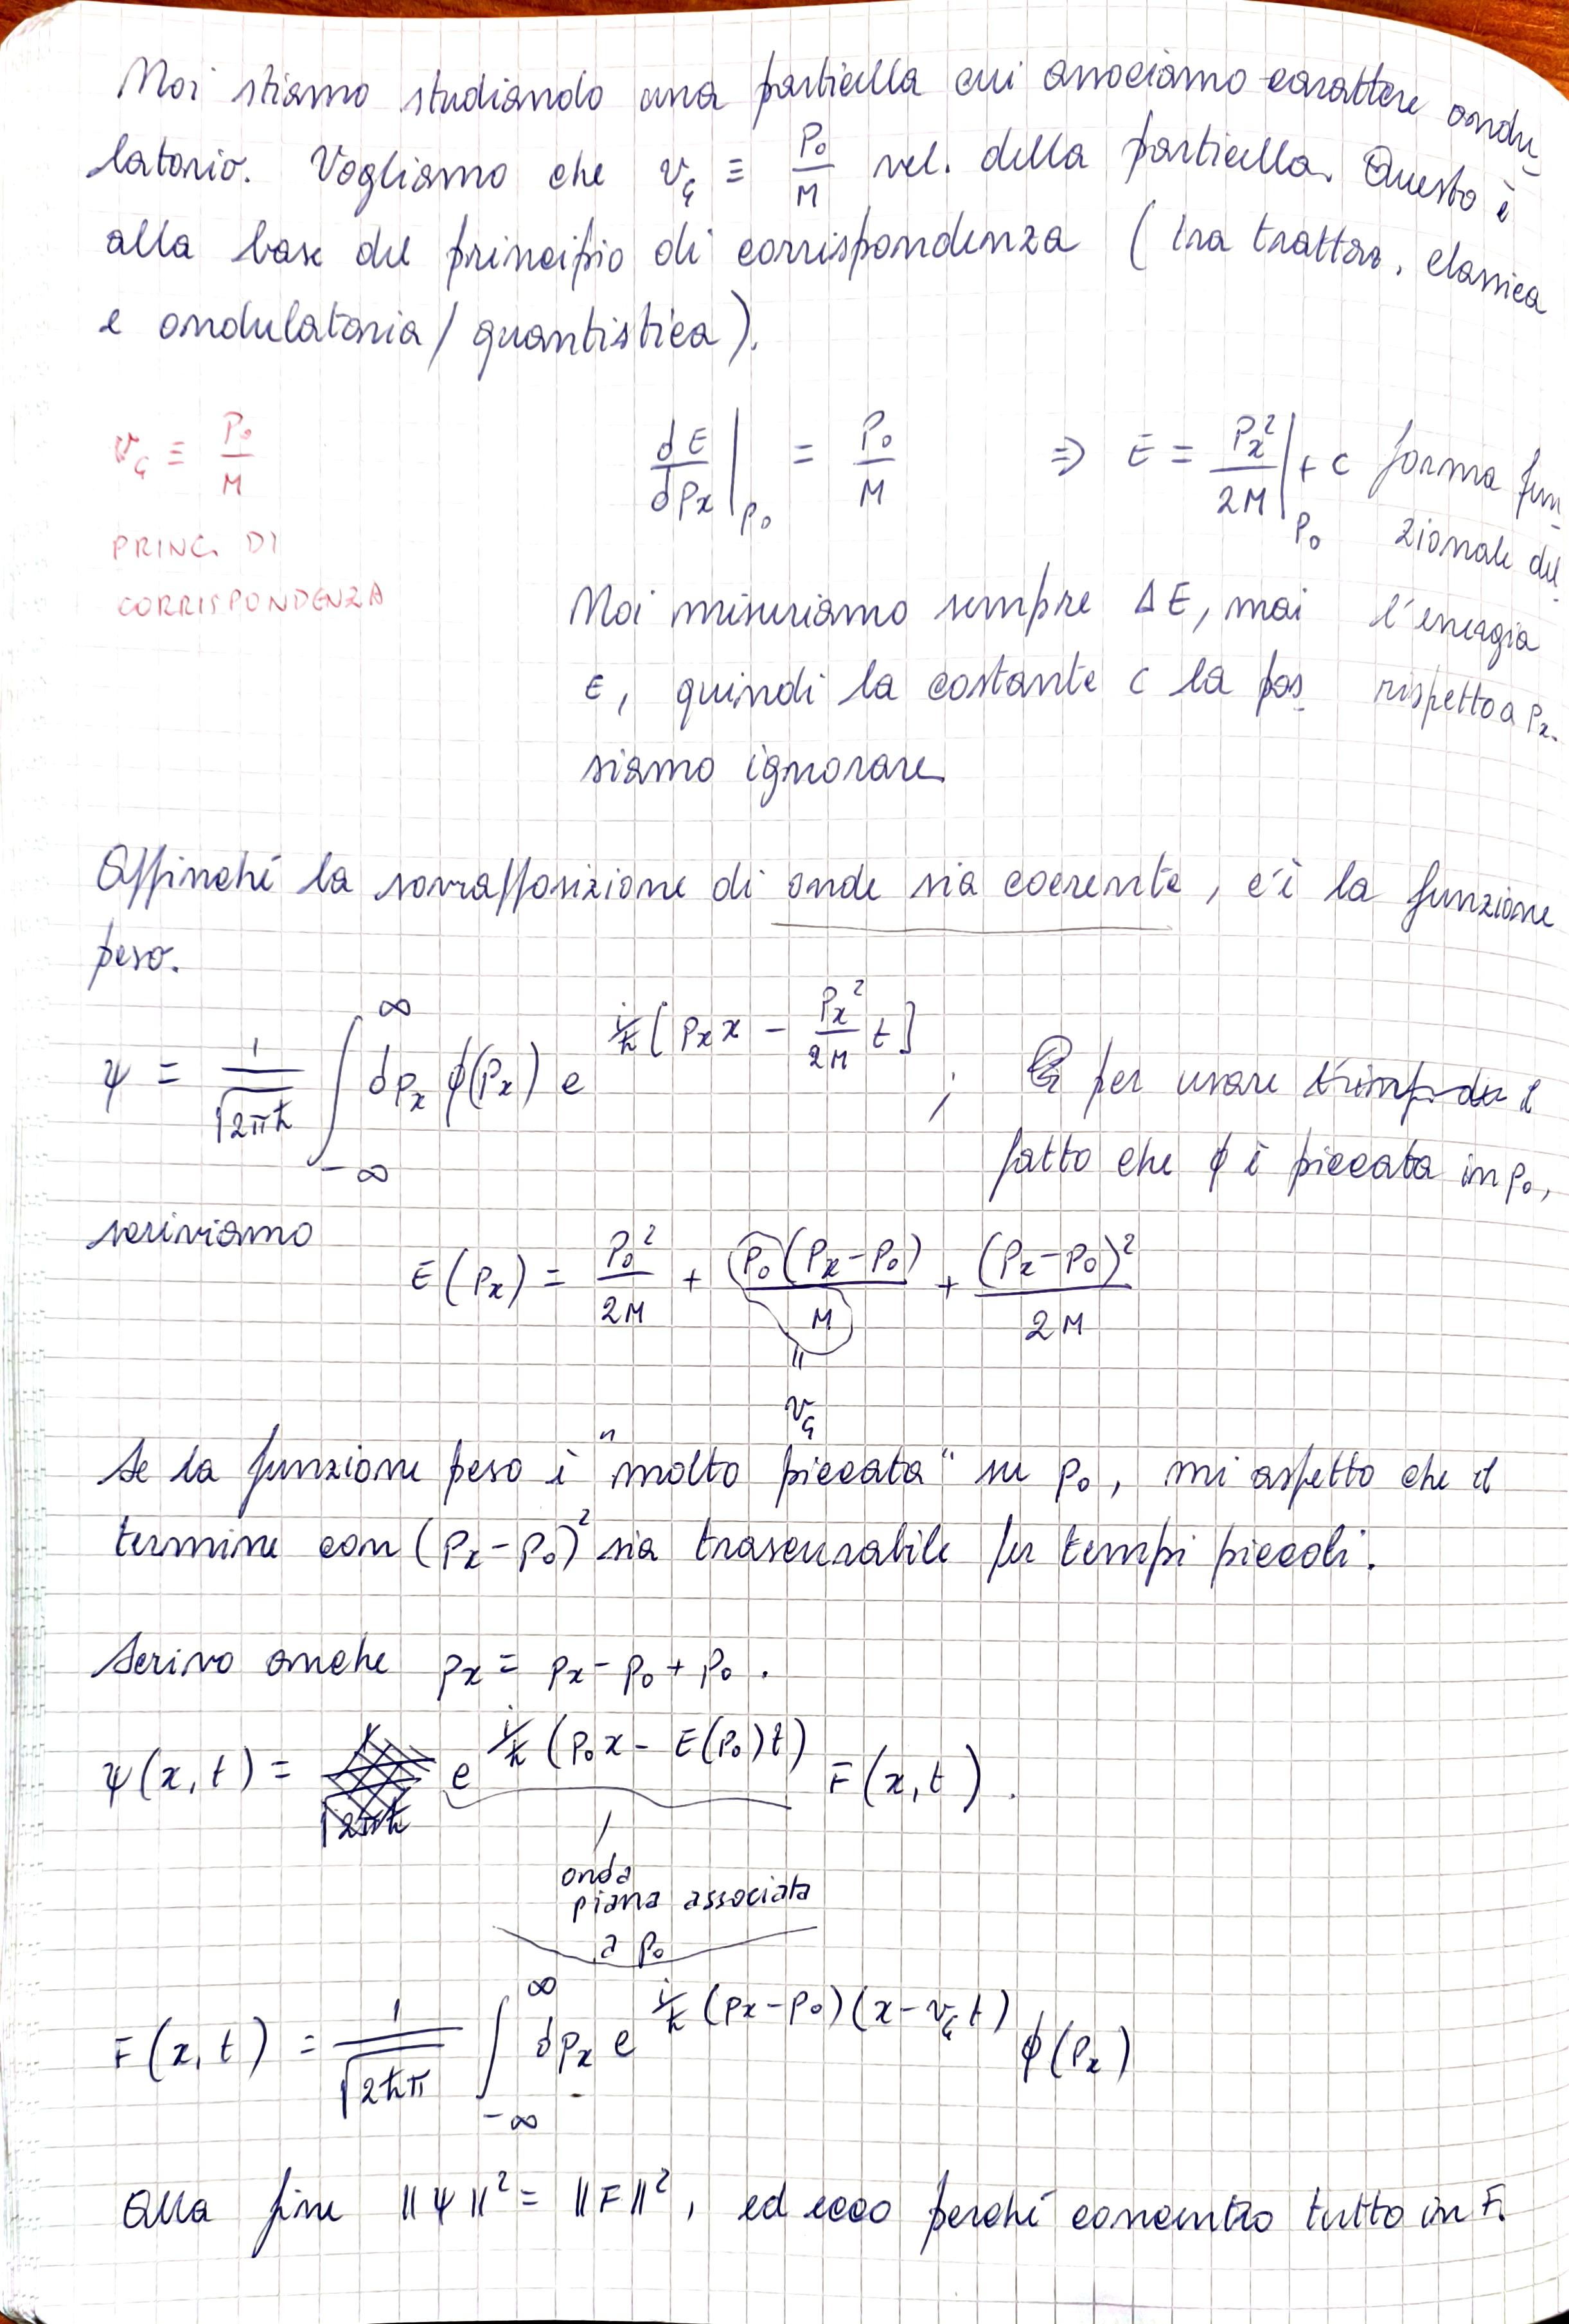 Noi stiamo studiando una particella cui associamo carattere ondu-
latorio. Vogliamo che v_G ≡ P₀/M vel. della particella. Questo è
alla base del principio di corrispondenza ( tra trattaz. classica
e ondulatoria/quantistica).
v_G ≡ P₀/M
PRINC. DI
CORRISPONDENZA
dE/dPx |_P₀ = P₀/M ⇒ E = Px²/2M |_P₀ + c
forma fun-
zionale del-
l'energia
rispetto a Px.
Noi misuriamo sempre ΔE, mai
E, quindi la costante c la pos-
siamo ignorare
Affinché la sovrapposizione di onde sia coerente, c'è la funzione
peso.
ψ = 1/√2πħ ∫_-∞^∞ dpx ϕ(Px) e^{i/ħ [Px x - Px²/2M t]} ; per usare il
fatto che ϕ è piccata in p₀,
scriviamo
E(Px) = P₀²/2M + P₀(Px-P₀)/M + (Px-P₀)²/2M
"
v_G
Se la funzione peso è "molto piccata" su p₀, mi aspetto che il
termine con (Px-P₀)² sia trascurabile per tempi piccoli.
Scrivo anche px = px-p₀+p₀.
ψ(x,t) = e^{i/ħ (P₀x - E(P₀)t)} F(x,t).
onda
piana associata
a p₀
F(x,t) = 1/√2ħπ ∫_-∞^∞ dpx e^{i/ħ (px-p₀)(x-v_G t)} ϕ(Px)
Alla fine ||ψ||² = ||F||², ed ecco perché concentro tutto in F.